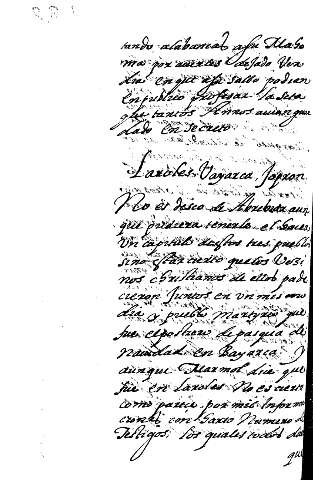 tando alabancas a su Maho
ma por averles dejado Ver
dia en que a su salbo podian
en publico profesar la seta
que tantos Annos avian guar
dado en secreto
Laroles, Bayarca, Jopron
No es deseo de Abrebiar aun
que pudiera tenerlo el hacer
Un capitulo destos tres pueblos
sino estar cierto que los Vezi
nos christianos de ellos pade
cieron Juntos en un mesmo
dia y pueblo Martyrio que
fue el postrero de pasqua de
Navidad en Bayarca Y
aunque Marmol dia que
fue en Laroles No es cierto
como parece por mis Informa
ciones con harto Numero de
Testigos, los quales todos di
que